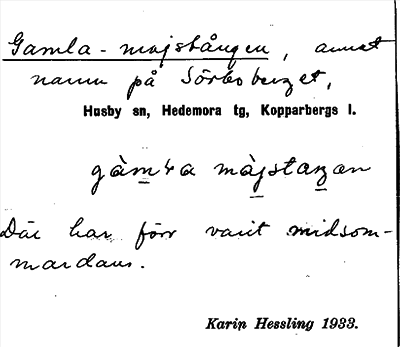 Gamla-majstången, annat
namn på Sörboberget,
Husby sn, Hedemora tg, Kopparbergs l.
majstaŋan
Där har förr varit midsom-
mardans.
Karin Hessling 1933.